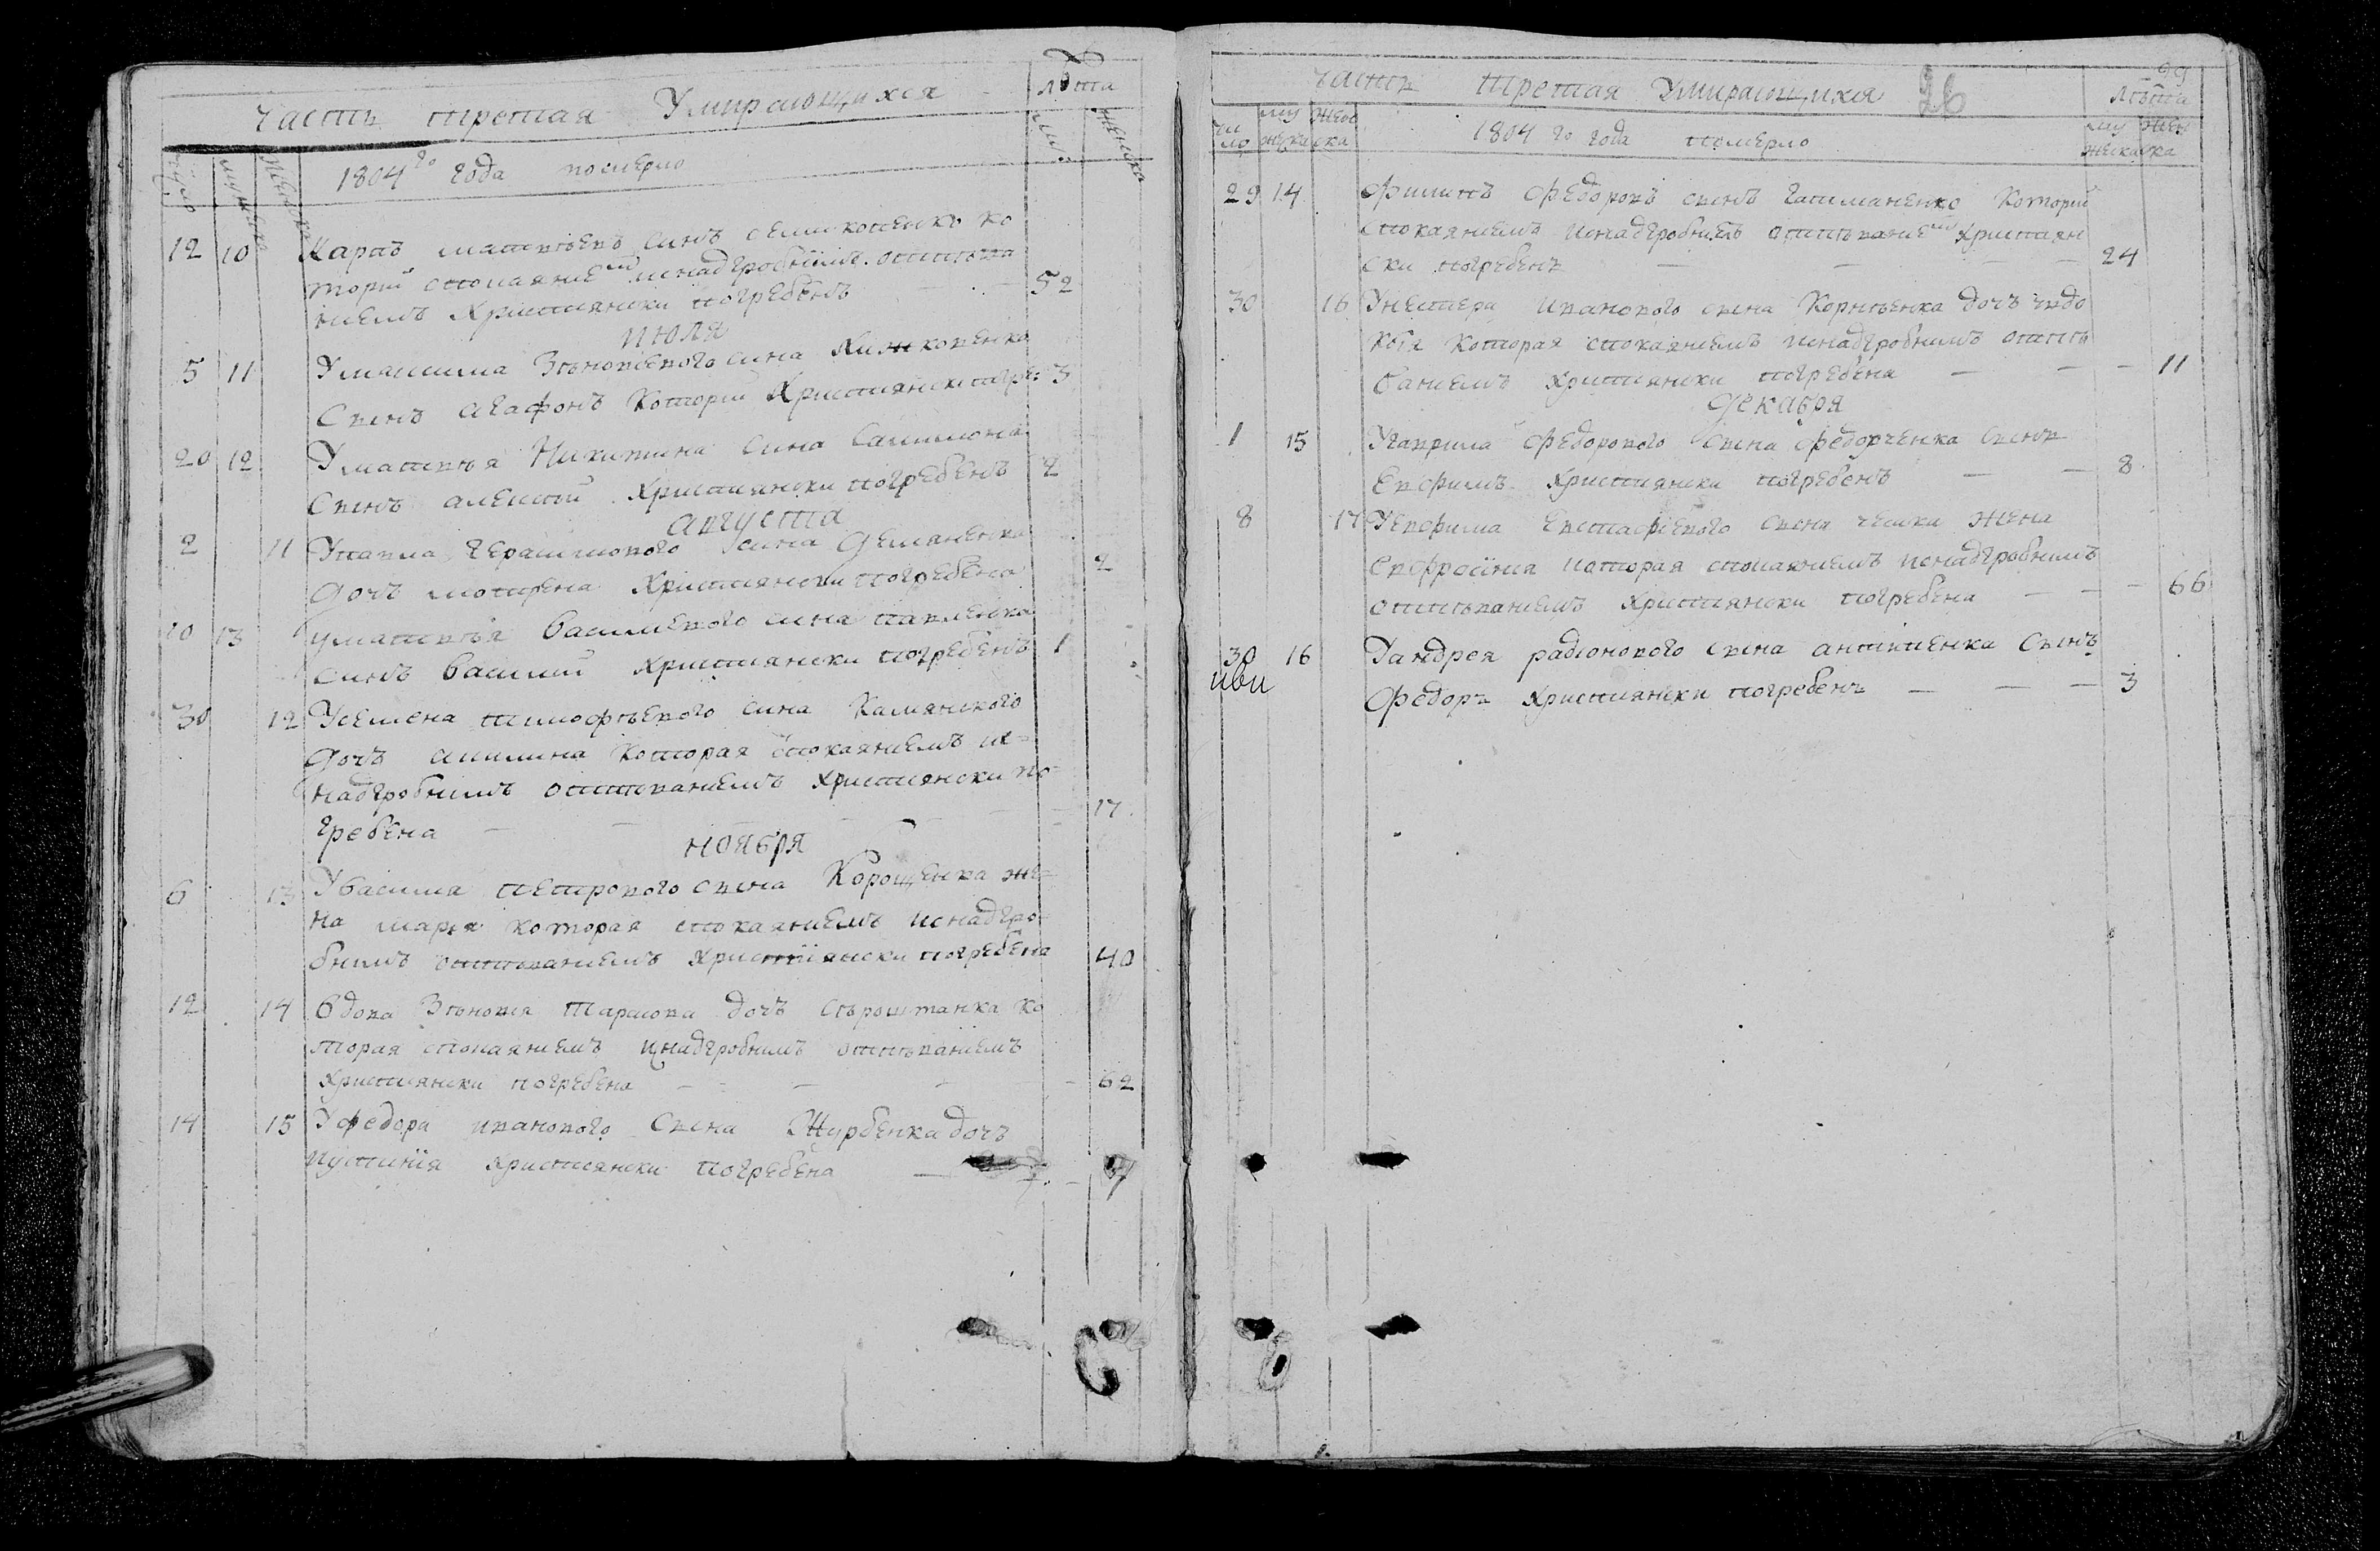 часть третая Умирающихся
лѣта
число мужеска женска
1804го года померло
муж. женска
12 10 Карпъ матвѣевъ синъ семикопенко ко
торій споканиемъ инадгробнимъ отпѣва
ниемъ Християнски погребенъ 52
июля
5 11 Умаксима Зѣновѣевого сина
Свинъ агафонъ Которій Християнски погре: 3
20 12 Уматвѣя Никитина сина
Свинъ алексѣй Християнски погребенъ 2
августа
2 11 Упавла Герасимового сина Демяненка
дочъ мотрена Християнски погребена 2
10 13 уматвѣя Василиевого сина павленка
синъ Василий Християнски погребенъ 1
30 12 Усемена тимофѣевого сина Камянского
дочъ акилина Которая споканиемъ и
надгробнимъ отпѣваниемъ Християнски по=
гребена 17
ноября
6 13 Увасиля петрового свина Корощенка же=
на марѣя которая споканиемъ инадгро
бнимъ отпѣваниемъ Християнски погребена 40
12 14 Вдова Зѣновия Тарасова дочъ сѣроштанка ко
торая споканиемъ инадгробнимъ отпѣваниемъ
Християнски погребена 62
14 15 Уфедора иванового Свина Журбенка дочъ
иустинія християнски погребена 7
часть третая Умирающихся 26
лѣта
число мужески женска 1804го года померло мужеска женска
29 14 Филипъ Федоровъ свинъ Которій
споканиемъ инадгробнимъ отпѣваниемъ Християн
ски погребенъ 24
30 16 Унестера иванового свина Корнѣенка дочъ явдо
кѣя Которая споканиемъ инадгробнимъ отпѣ
ваниемъ Християнски погребена 11
декабря
1 15 Угаврила Федорового Свина Федорченка Свинъ
Евфимъ Християнски погребенъ 8
8 17 Уевфима Евстафѣевого свина жена
Евфросиния которая споканиемъ инадгробнимъ
отпѣваниемъ Християнски погребена 66
30 16 Уандрея радионового свина антипенка Свинъ
Федоръ Християнски погребенъ 3